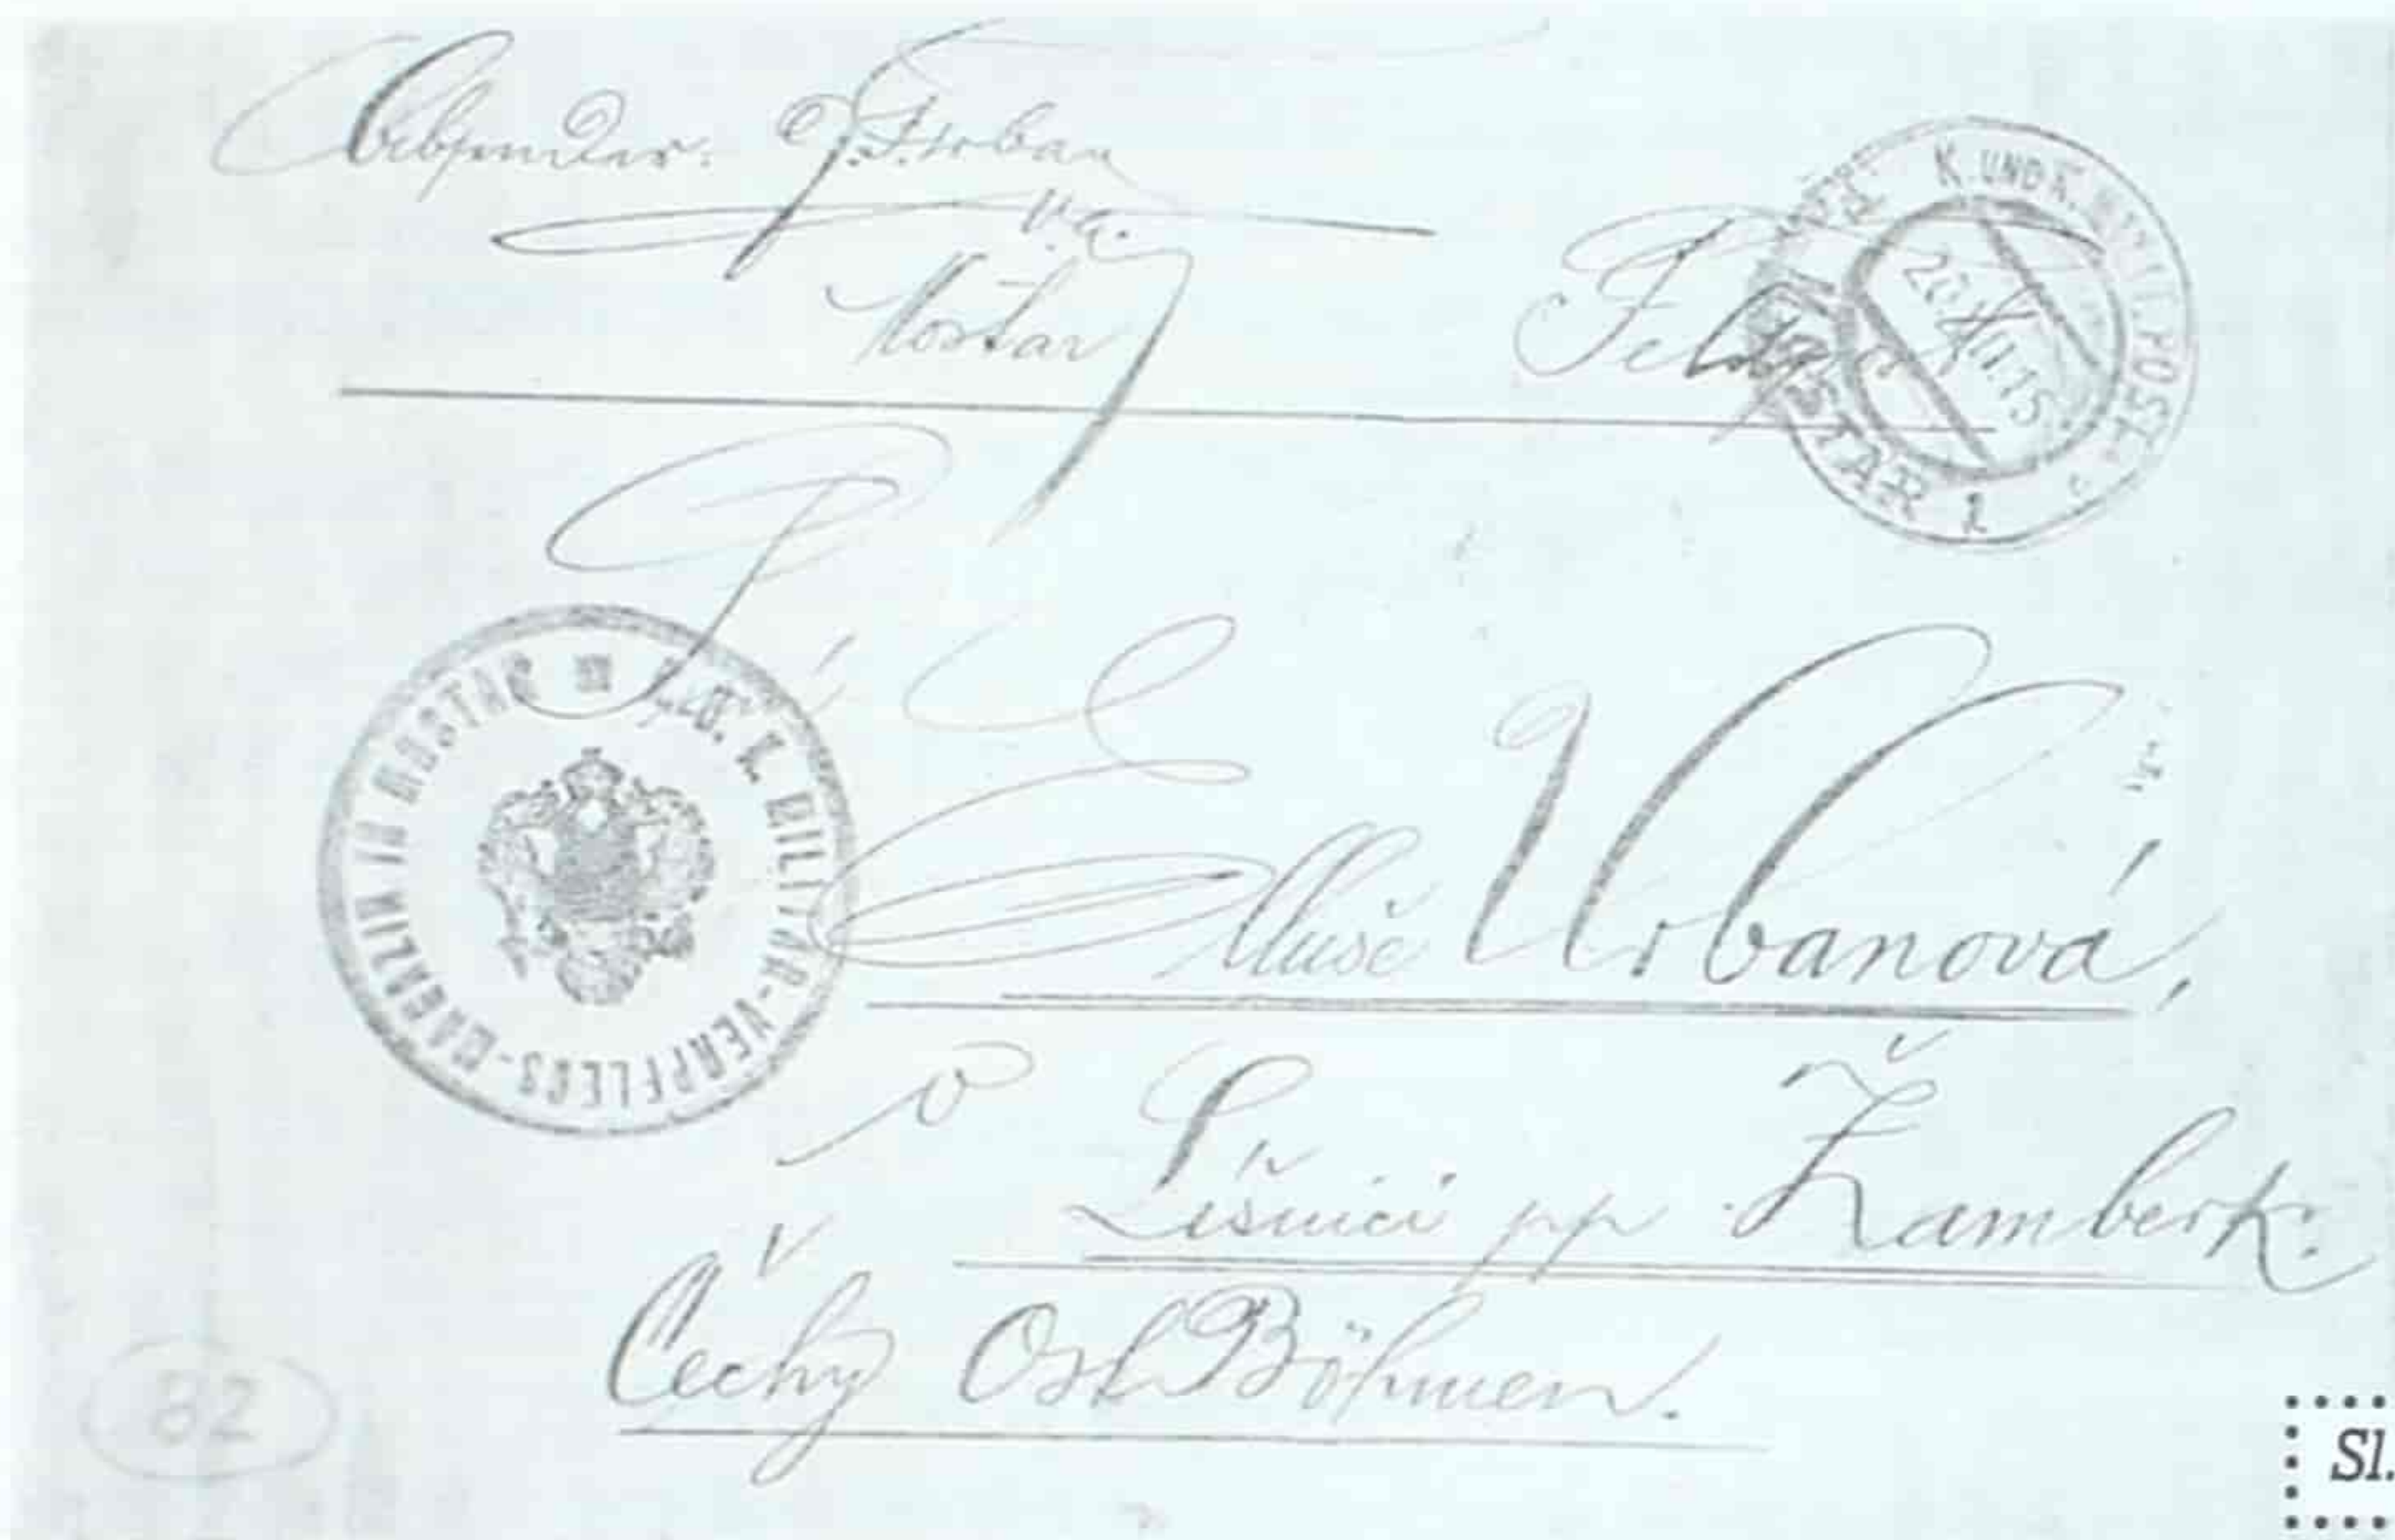 Absender: J. Urban
Mostar
K. UND K. MILIT. POST
20.XII.15
MOSTAR 1
K. U. K. MILITÄR-VERPFLEGS-MAGAZIN IN MOSTAR
Urbanová,
v Lišnici pp Žamberk.
Čechy Ost Böhmen.
82
Sl.